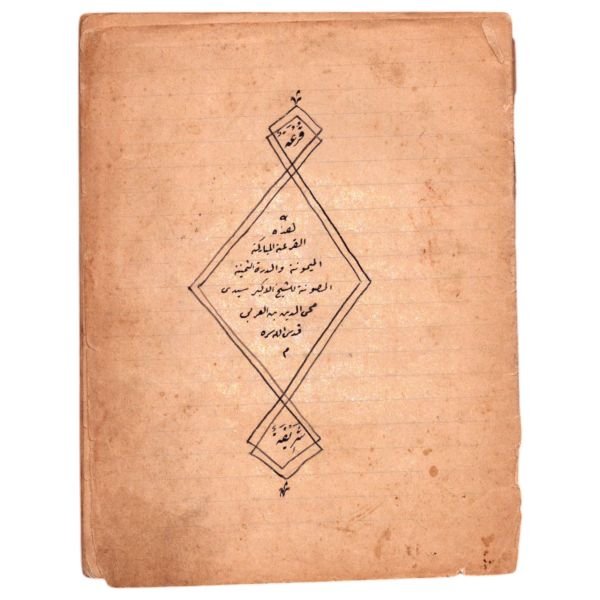 قُرْعَةٌ
هذه
القرعة المباركة
الميمونة والدرة الثمينة
المصونة للشيخ الاكبر سيدى
محى الدين بن العربي
قدس الله سره
م
شَرِيْفَةٌ